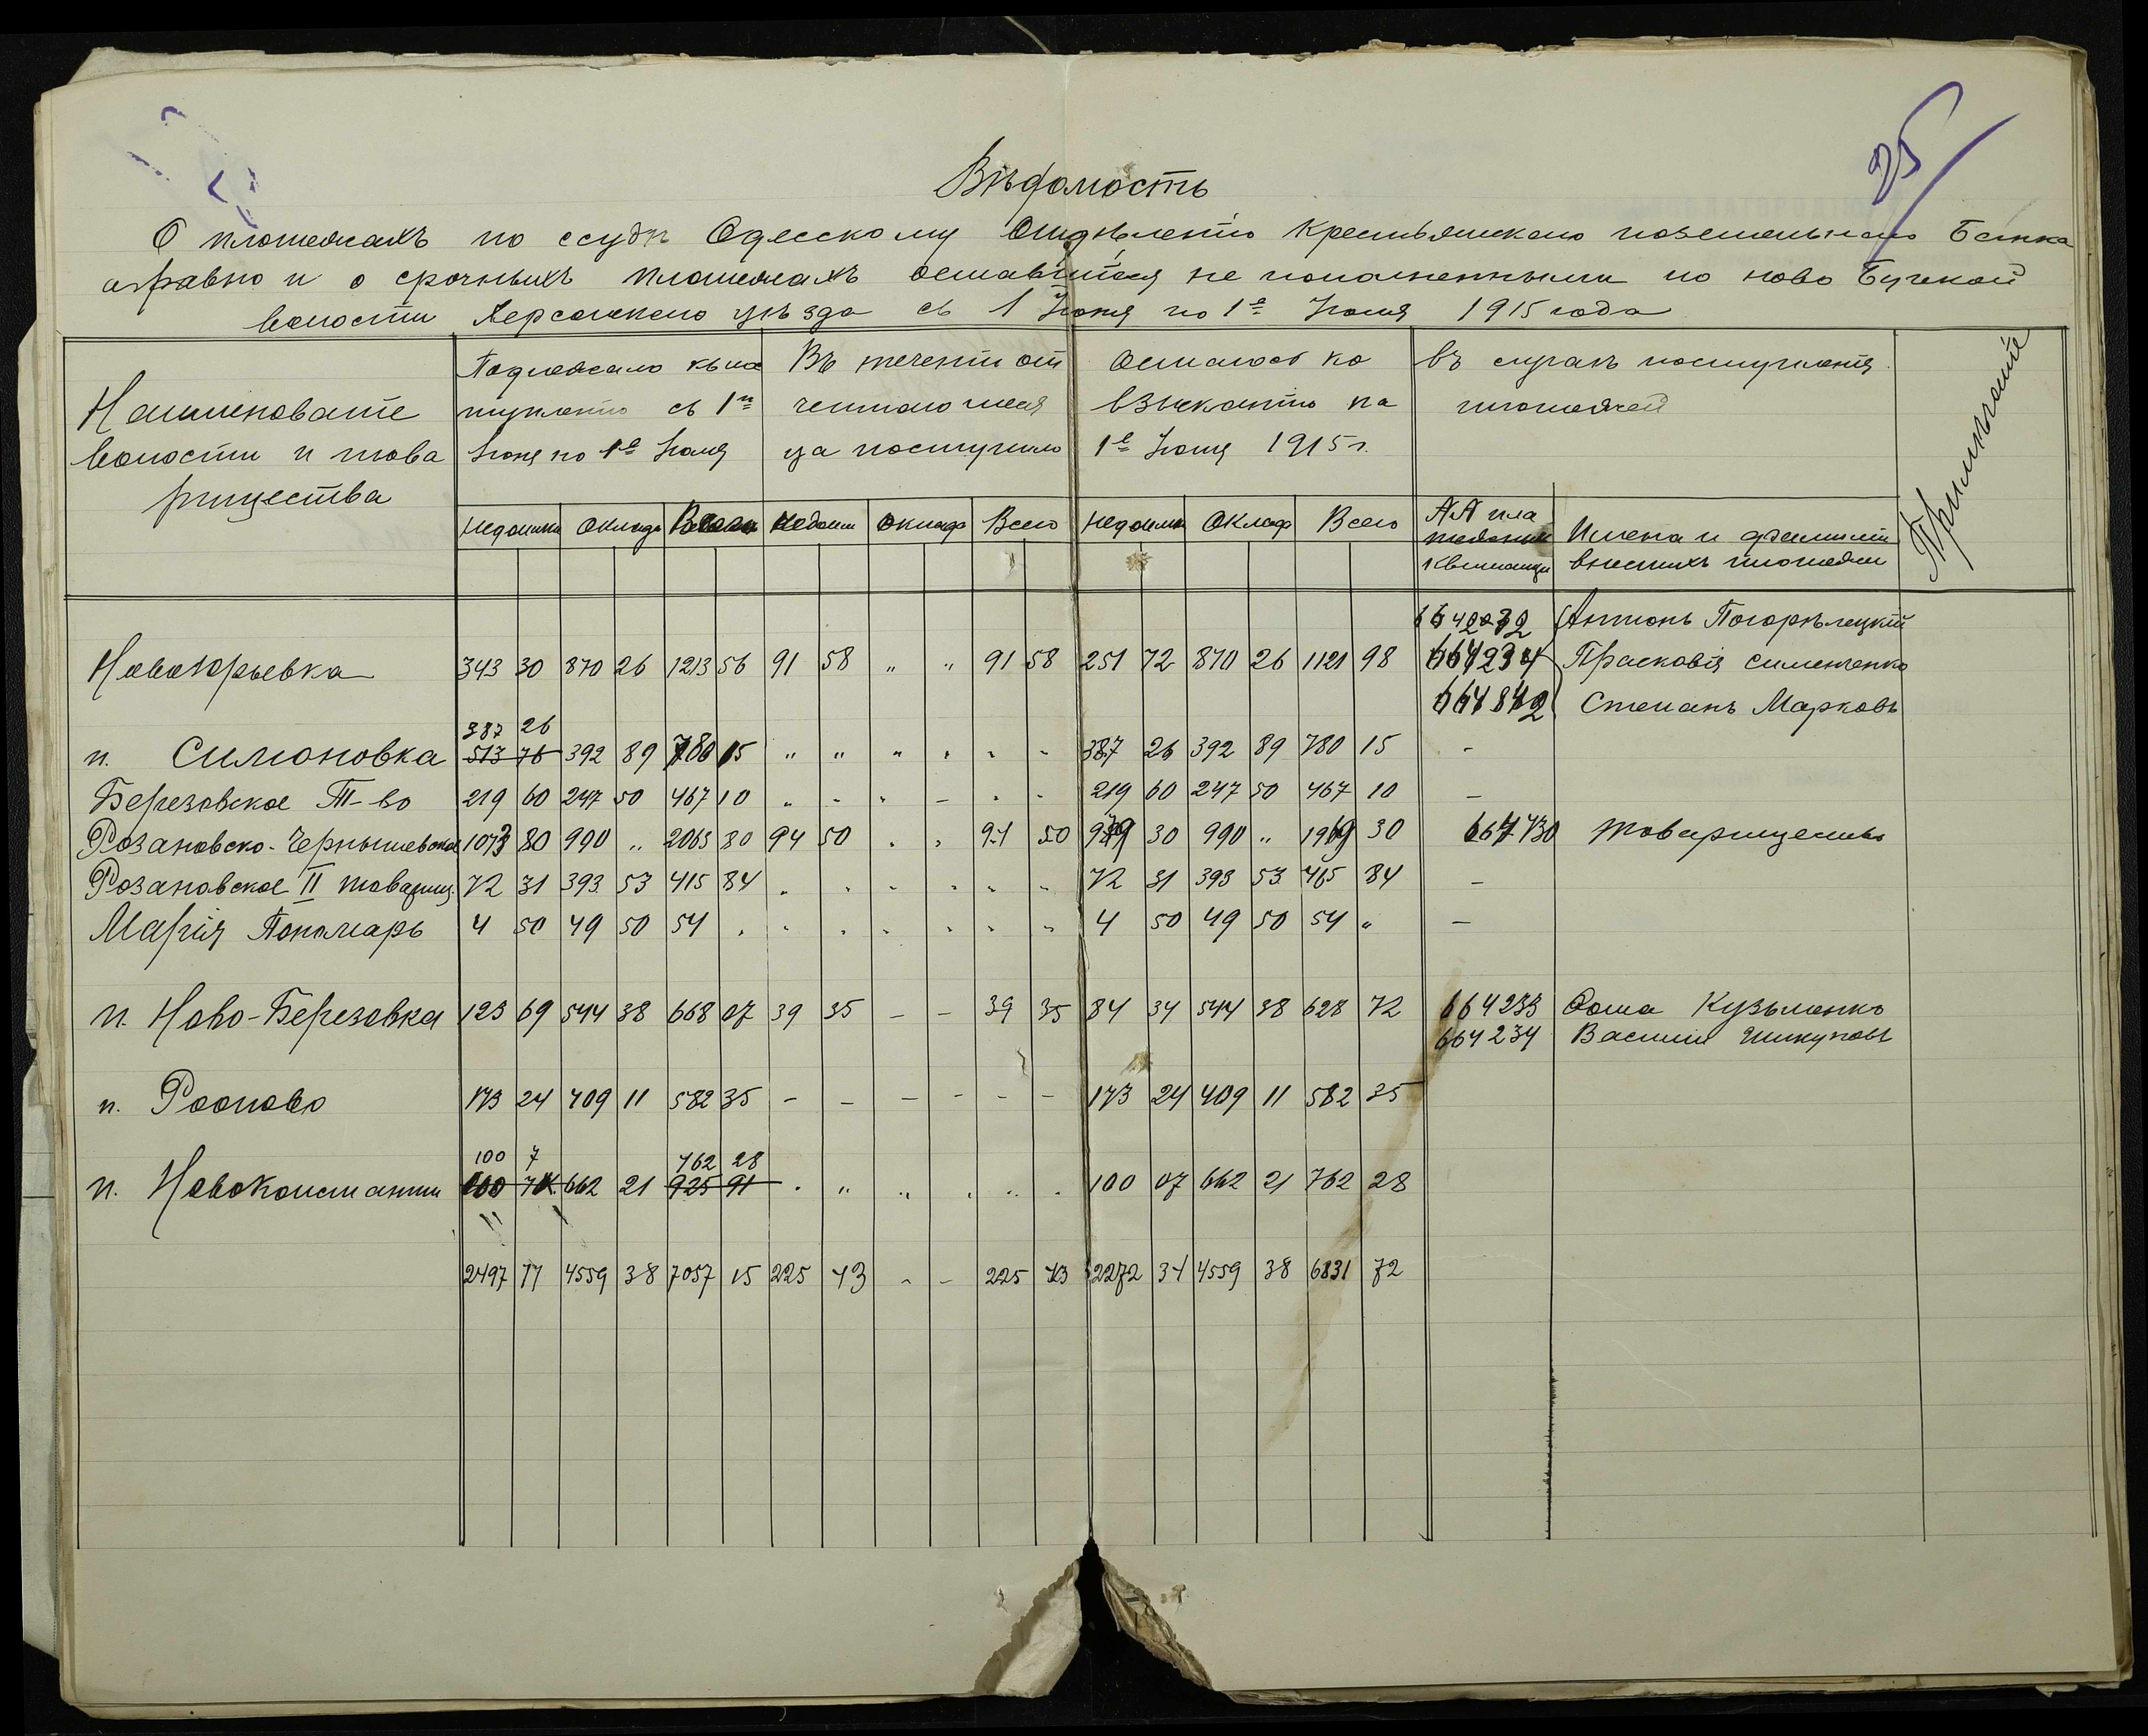 25
Вѣдомость
О платежахъ по ссудѣ Одесскому Отдѣленію Крестьянскаго поземельнаго Банка
а равно и о срочныхъ платежахъ оставшихся не пополненными по ново
волости Херсонскаго уѣзда съ 1 Іюня по 1е Іюля 1915 года
Наименованіе волости и това рищества
Подлежало къ пос тупленію съ 1го Іюня по 1е Іюля
Въ теченіи от четнаго меся ца поступило
Осталось ко взысканію на 1е Іюля 1915 г.
въ случаѣ поступленія платежей
Примѣчаніе
Недоимки Окладъ Недоим Оклад Всего Недоимки Оклад Всего
№№ пла тежныхъ квитанцій
Имена и фамиліи внесшихъ платежи
6642232 Антонъ Погорѣлецкій
Новоюрьевка 343 30 870 26 1213 56 91 58 " " 91 58 251 72 870 26 1121 98 664234 Прасковія Сименченко
664842 Степанъ Марковъ
387 26
п. Симоновка 513 76 392 89 780 15 " " " " " " 387 26 392 89 780 15 -
Березовское Т-во 219 60 247 50 467 10 " - " - " - 219 60 247 50 467 10 -
Розановско-Чернышевское 1073 80 990 " 2063 80 94 50 " " 94 50 979 30 990 " 1969 30 667730 товарищество
Розановское II товарищ. 72 31 393 53 415 84 " " " " " " 72 31 393 53 465 84 -
Марія Пономарь 4 50 49 50 54 " " " " " " " 4 50 49 50 54 " -
п. Ново-Березовка 123 69 544 38 668 07 39 35 - - 39 35 84 34 544 38 628 72 664233 Фома Кузьменко
664234 Василій Шикуновъ
п. 173 24 409 11 582 35 - - - - - - 173 24 409 11 582 35
100 7 762 28
п. Новоконстантин 662 21 925 91 " " " " " " 100 07 662 21 762 28
2497 77 4559 38 7057 15 225 43 - - 225 43 2272 34 4559 38 6831 72